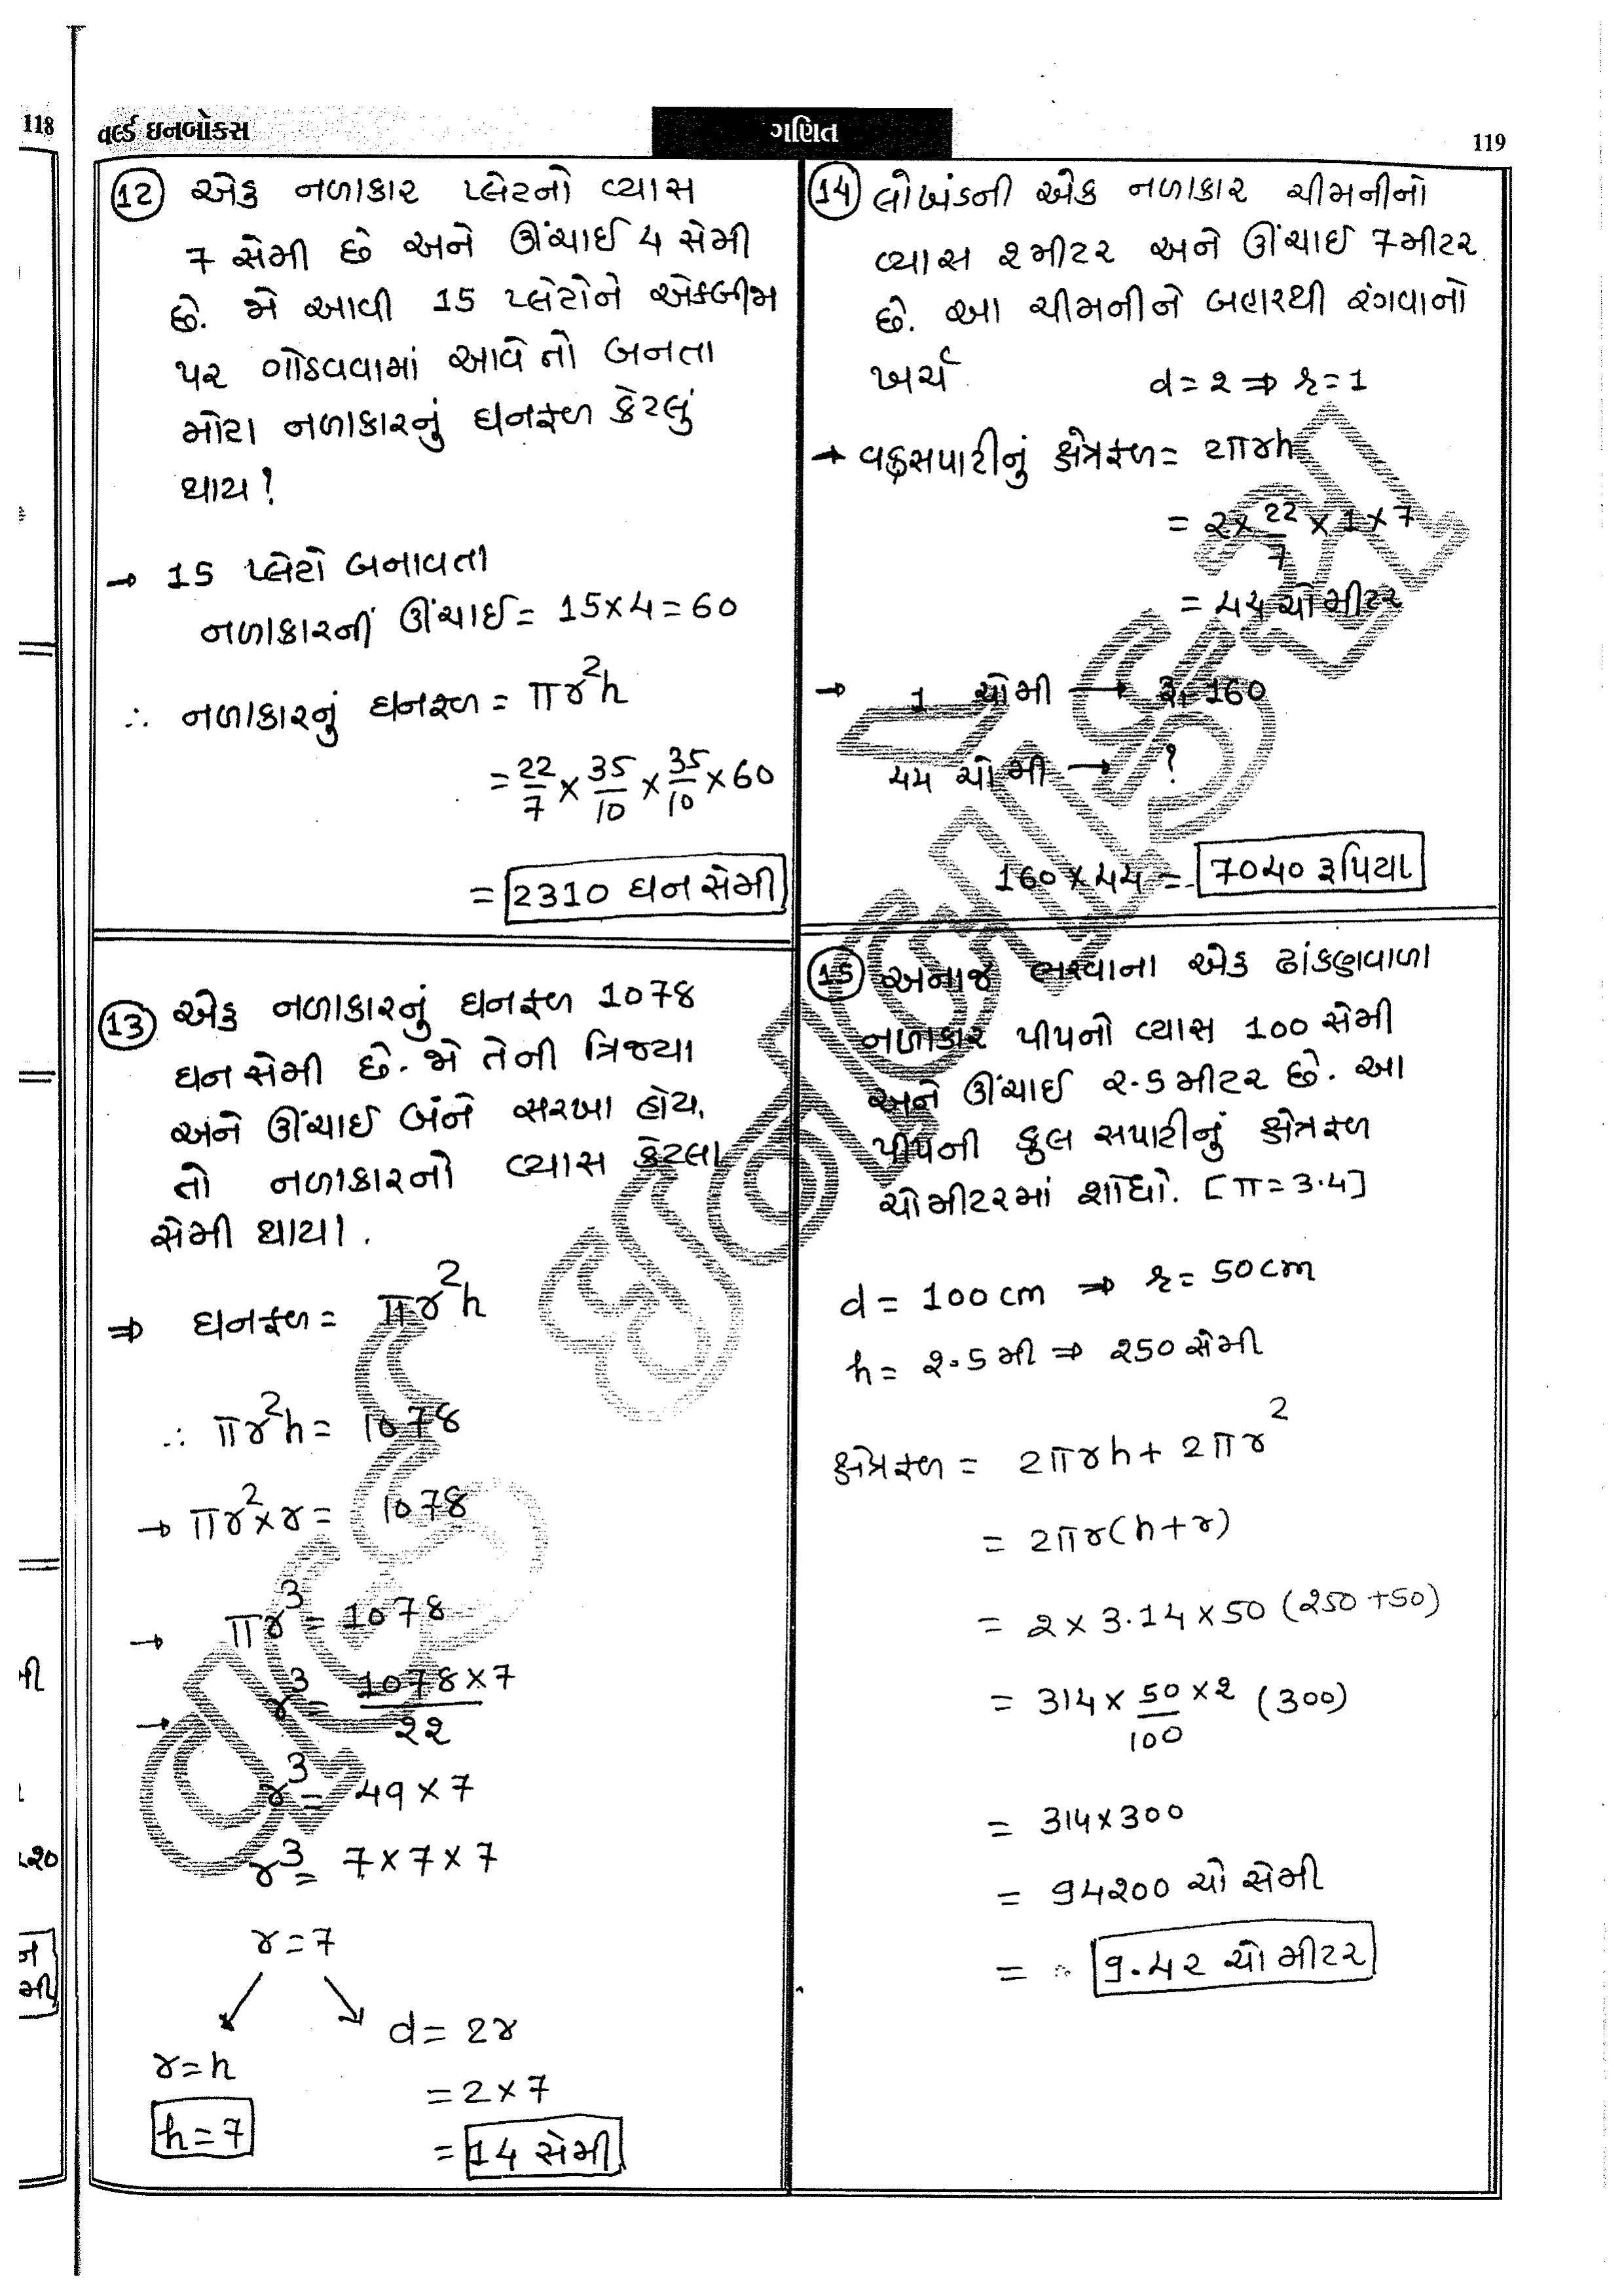 118
વર્લ્ડ ઇનબોક્સ
ગણિત
119
12 એક નળાકાર પ્લેટનો વ્યાસ
7 સેમી છે અને ઊંચાઈ 4 સેમી
છે. જો આવી 15 પ્લેટોને એકબીજા
પર ગોઠવવામાં આવે તો બનતા
મોટા નળાકારનું ઘનફળ કેટલું
થાય?
→ 15 પ્લેટો બનાવતા
નળાકારની ઊંચાઈ = 15×4 = 60
∴ નળાકારનું ઘનફળ = πr²h
= 22/7 × 35/10 × 35/10 × 60
= 2310 ઘન સેમી
13 એક નળાકારનું ઘનફળ 1078
ઘન સેમી છે. જો તેની ત્રિજ્યા
અને ઊંચાઈ બંને સરખા હોય,
તો નળાકારનો વ્યાસ કેટલા
સેમી થાય।.
⇒ ઘનફળ = πr²h
∴ πr²h = 1078
→ πr²×r = 1078
→ πr³ = 1078
→ r³ = 1078×7/૨૨
r³ = 49×7
r³ = 7×7×7
r = 7
r = h
h = 7
d = 2r
= 2×7
= 14 સેમી
14 લોખંડની એક નળાકાર ચીમનીનો
વ્યાસ ૨ મીટર અને ઊંચાઈ 7 મીટર
છે. આ ચીમનીને બહારથી રંગવાનો
ખર્ચ d = ૨ ⇒ r = 1
→ વક્રસપાટીનું ક્ષેત્રફળ = 2πrh
= ૨ × 22/7 × 1 × 7
= 44 ચોમીટર
→ 1 ચોમી → રૂ. 160
44 ચોમી → ?
160 × 44 = 7040 રૂપિયા
15 અનાજ ભરવાના એક ઢાંકણવાળા
નળાકાર પીપનો વ્યાસ 100 સેમી
અને ઊંચાઈ ૨.5 મીટર છે. આ
પીપની કુલ સપાટીનું ક્ષેત્રફળ
ચોમીટરમાં શોધો. [π = 3.4]
d = 100 cm ⇒ r = 50 cm
h = ૨.5 મી ⇒ ૨50 સેમી
ક્ષેત્રફળ = 2πrh + 2πr²
= 2πr(h+r)
= ૨ × 3.14 × 50 (૨50 + 50)
= 314 × 50/100 × ૨ (300)
= 314×300
= 94૨00 ચો સેમી
= ∴ 9.4૨ ચો મીટર